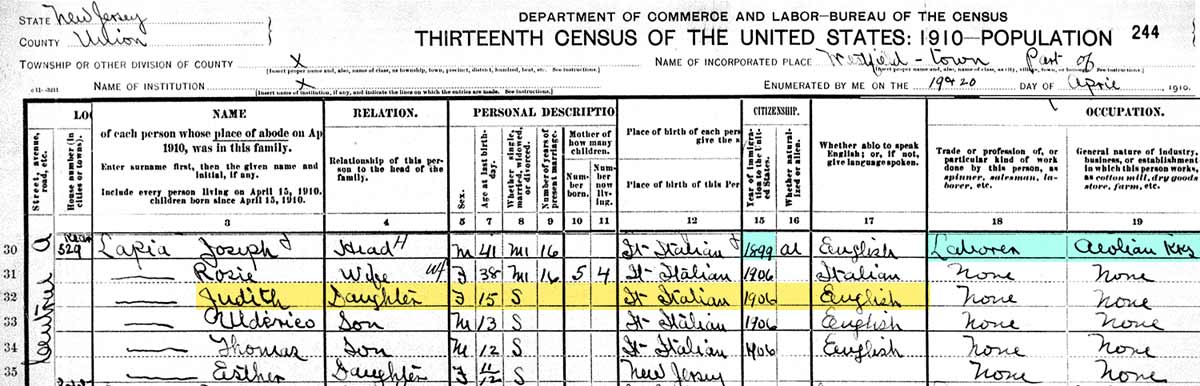 STATE New Jersey
COUNTY Union
DEPARTMENT OF COMMERCE AND LABOR—BUREAU OF THE CENSUS
THIRTEENTH CENSUS OF THE UNITED STATES: 1910—POPULATION 244
TOWNSHIP OR OTHER DIVISION OF COUNTY X
[Insert proper name and, also, name of class, as township, town, precinct, district, hundred, beat, etc. See instructions.]
NAME OF INCORPORATED PLACE Westfield - town Part of
NAME OF INSTITUTION X
[Insert name of institution, if any, and indicate the lines on which the entries are made. See instructions.]
ENUMERATED BY ME ON THE 19 & 20 DAY OF April, 1910.
NAME RELATION. PERSONAL DESCRIPTIO CITIZENSHIP. OCCUPATION.
Street, avenue, road, etc.
House number (in cities or towns)
of each person whose place of abode on Ap
1910, was in this family.
Enter surname first, then the given name and
initial, if any.
Include every person living on April 15, 1910.
children born since April 15, 1910.
Relationship of this per-
son to the head of the
family.
Sex.
Age at last birth-
day.
Whether single,
married, widowed,
or divorced.
Number of years of
present marriage.
Mother of
how many
children.
Num-
ber
born.
Num-
ber
now
liv-
ing.
Place of birth of each pers
give the s
Place of birth of this Per
Year of immigra-
tion to the Unit-
ed States.
Whether natural-
ized or alien.
Whether able to speak
English; or, if not,
give language spoken.
Trade or profession of, or
particular kind of work
done by this person, as
spinner, salesman, la-
borer, etc.
General nature of industry,
business, or establishment
in which this person works,
as cotton mill, dry goods
store, farm, etc.
3 4 5 7 8 9 10 11 12 15 16 17 18 19
30 529 Lapia Joseph Head M 41 M1 16 It- Italian 1899 al English Laborer Aeolian
31 Rosie Wife F 38 M1 16 5 4 It- Italian 1906 Italian None None
32 Judith Daughter F 15 S It Italian 1906 English None None
33 Uldérico Son M 13 S It- Italian 1906 English None None
34 Thomas Son M 12 S It- Italian 1906 English None None
35 Esther Daughter F 11/12 S New Jersey None None